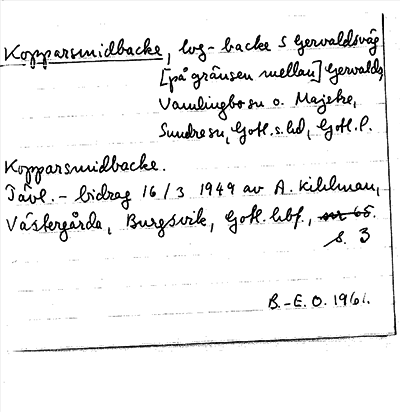 Kopparsmidbacke, lvg - backe S Gervaldsväg
[på gränsen mellan] Gervalds,
Vamlingbo sn o. Majeke,
Sundre sn, Gotl. s. hd, Gotl. l.
Kopparsmidbacke.
Tävl. - bidrag 16/3 1949 av A. Kihlman,
Västergårda, Burgsvik, Gotl. hbf., nr 65.
s. 3
B.-E.O. 1961.